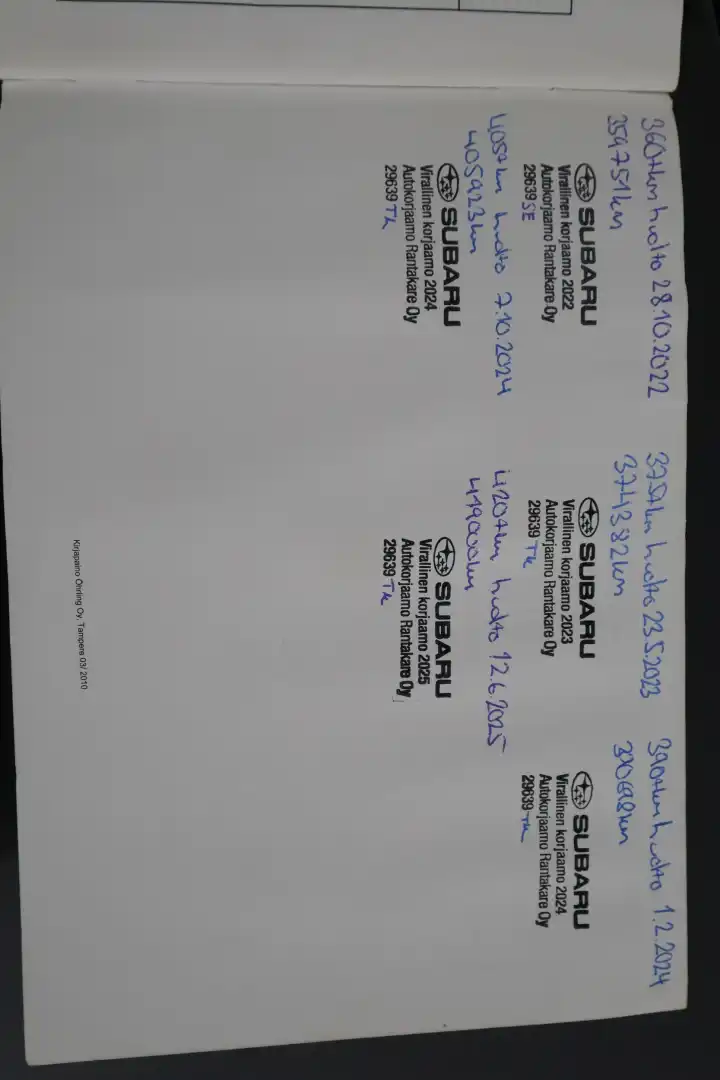 360tkm huolto 28.10.2022
359751km
SUBARU
Virallinen korjaamo 2022
Autokorjaamo Rantakare Oy
29639 SE
375tkm huolto 23.5.2023
374382km
SUBARU
Virallinen korjaamo 2023
Autokorjaamo Rantakare Oy
29639 Tk
390tkm huolto 1.2.2024
SUBARU
Virallinen korjaamo 2024
Autokorjaamo Rantakare Oy
29639 Tk
405tkm huolto 7.10.2024
405923km
SUBARU
Virallinen korjaamo 2024
Autokorjaamo Rantakare Oy
29639 Tk
420tkm huolto 12.6.2025
419000km
SUBARU
Virallinen korjaamo 2025
Autokorjaamo Rantakare Oy
29639 Tk
Kirjapaino Öhrling Oy, Tampere 03/ 2010